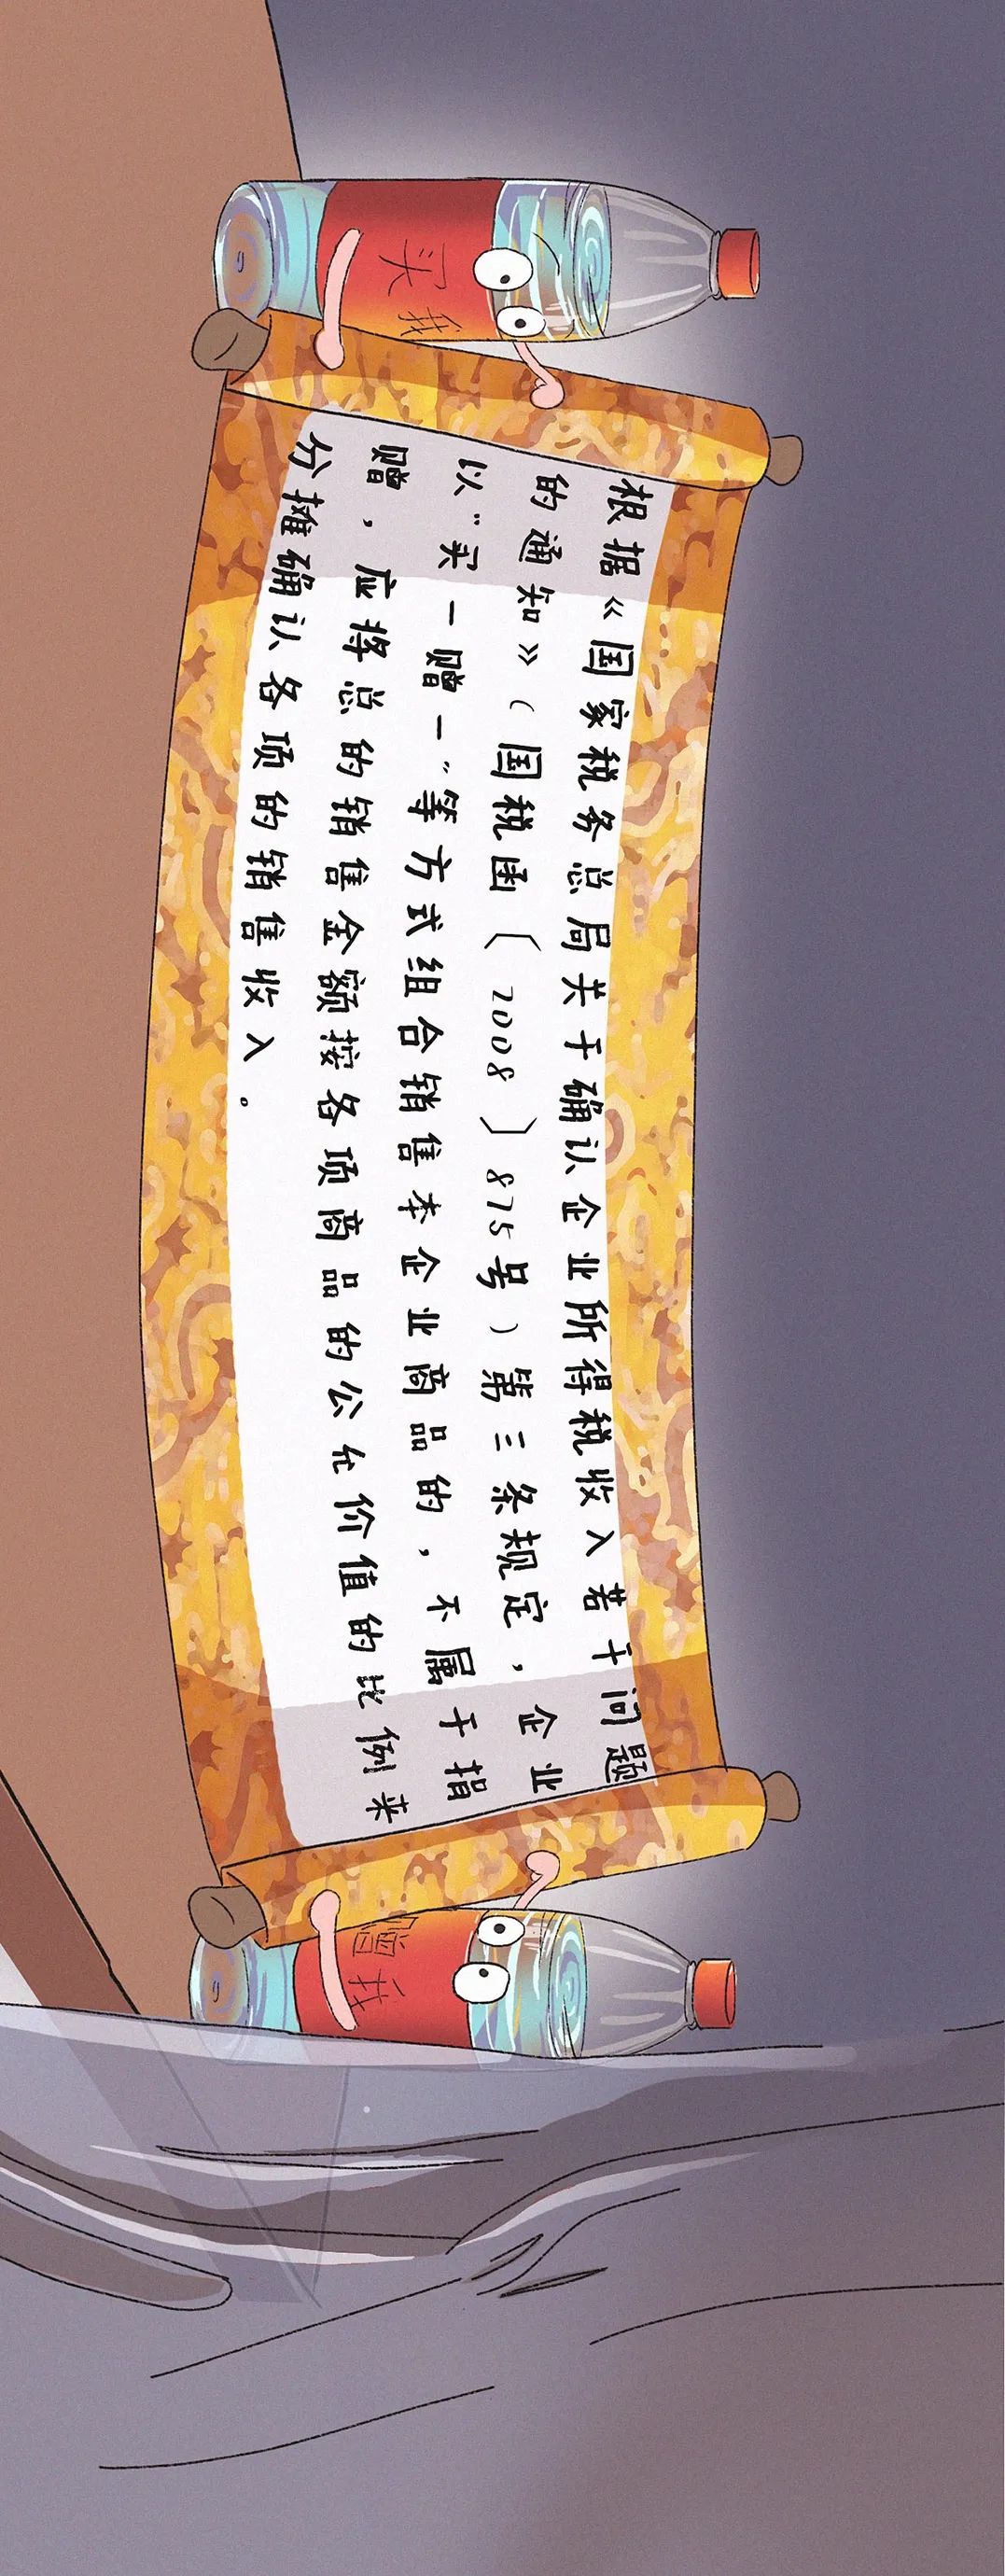 买我
根据《国家税务总局关于确认企业所得税收入若干问题
的通知》（国税函〔2008〕875号）第三条规定，企业
以“买一赠一”等方式组合销售本企业商品的，不属于捐
赠，应将总的销售金额按各项商品的公允价值的比例来
分摊确认各项的销售收入。
赠我